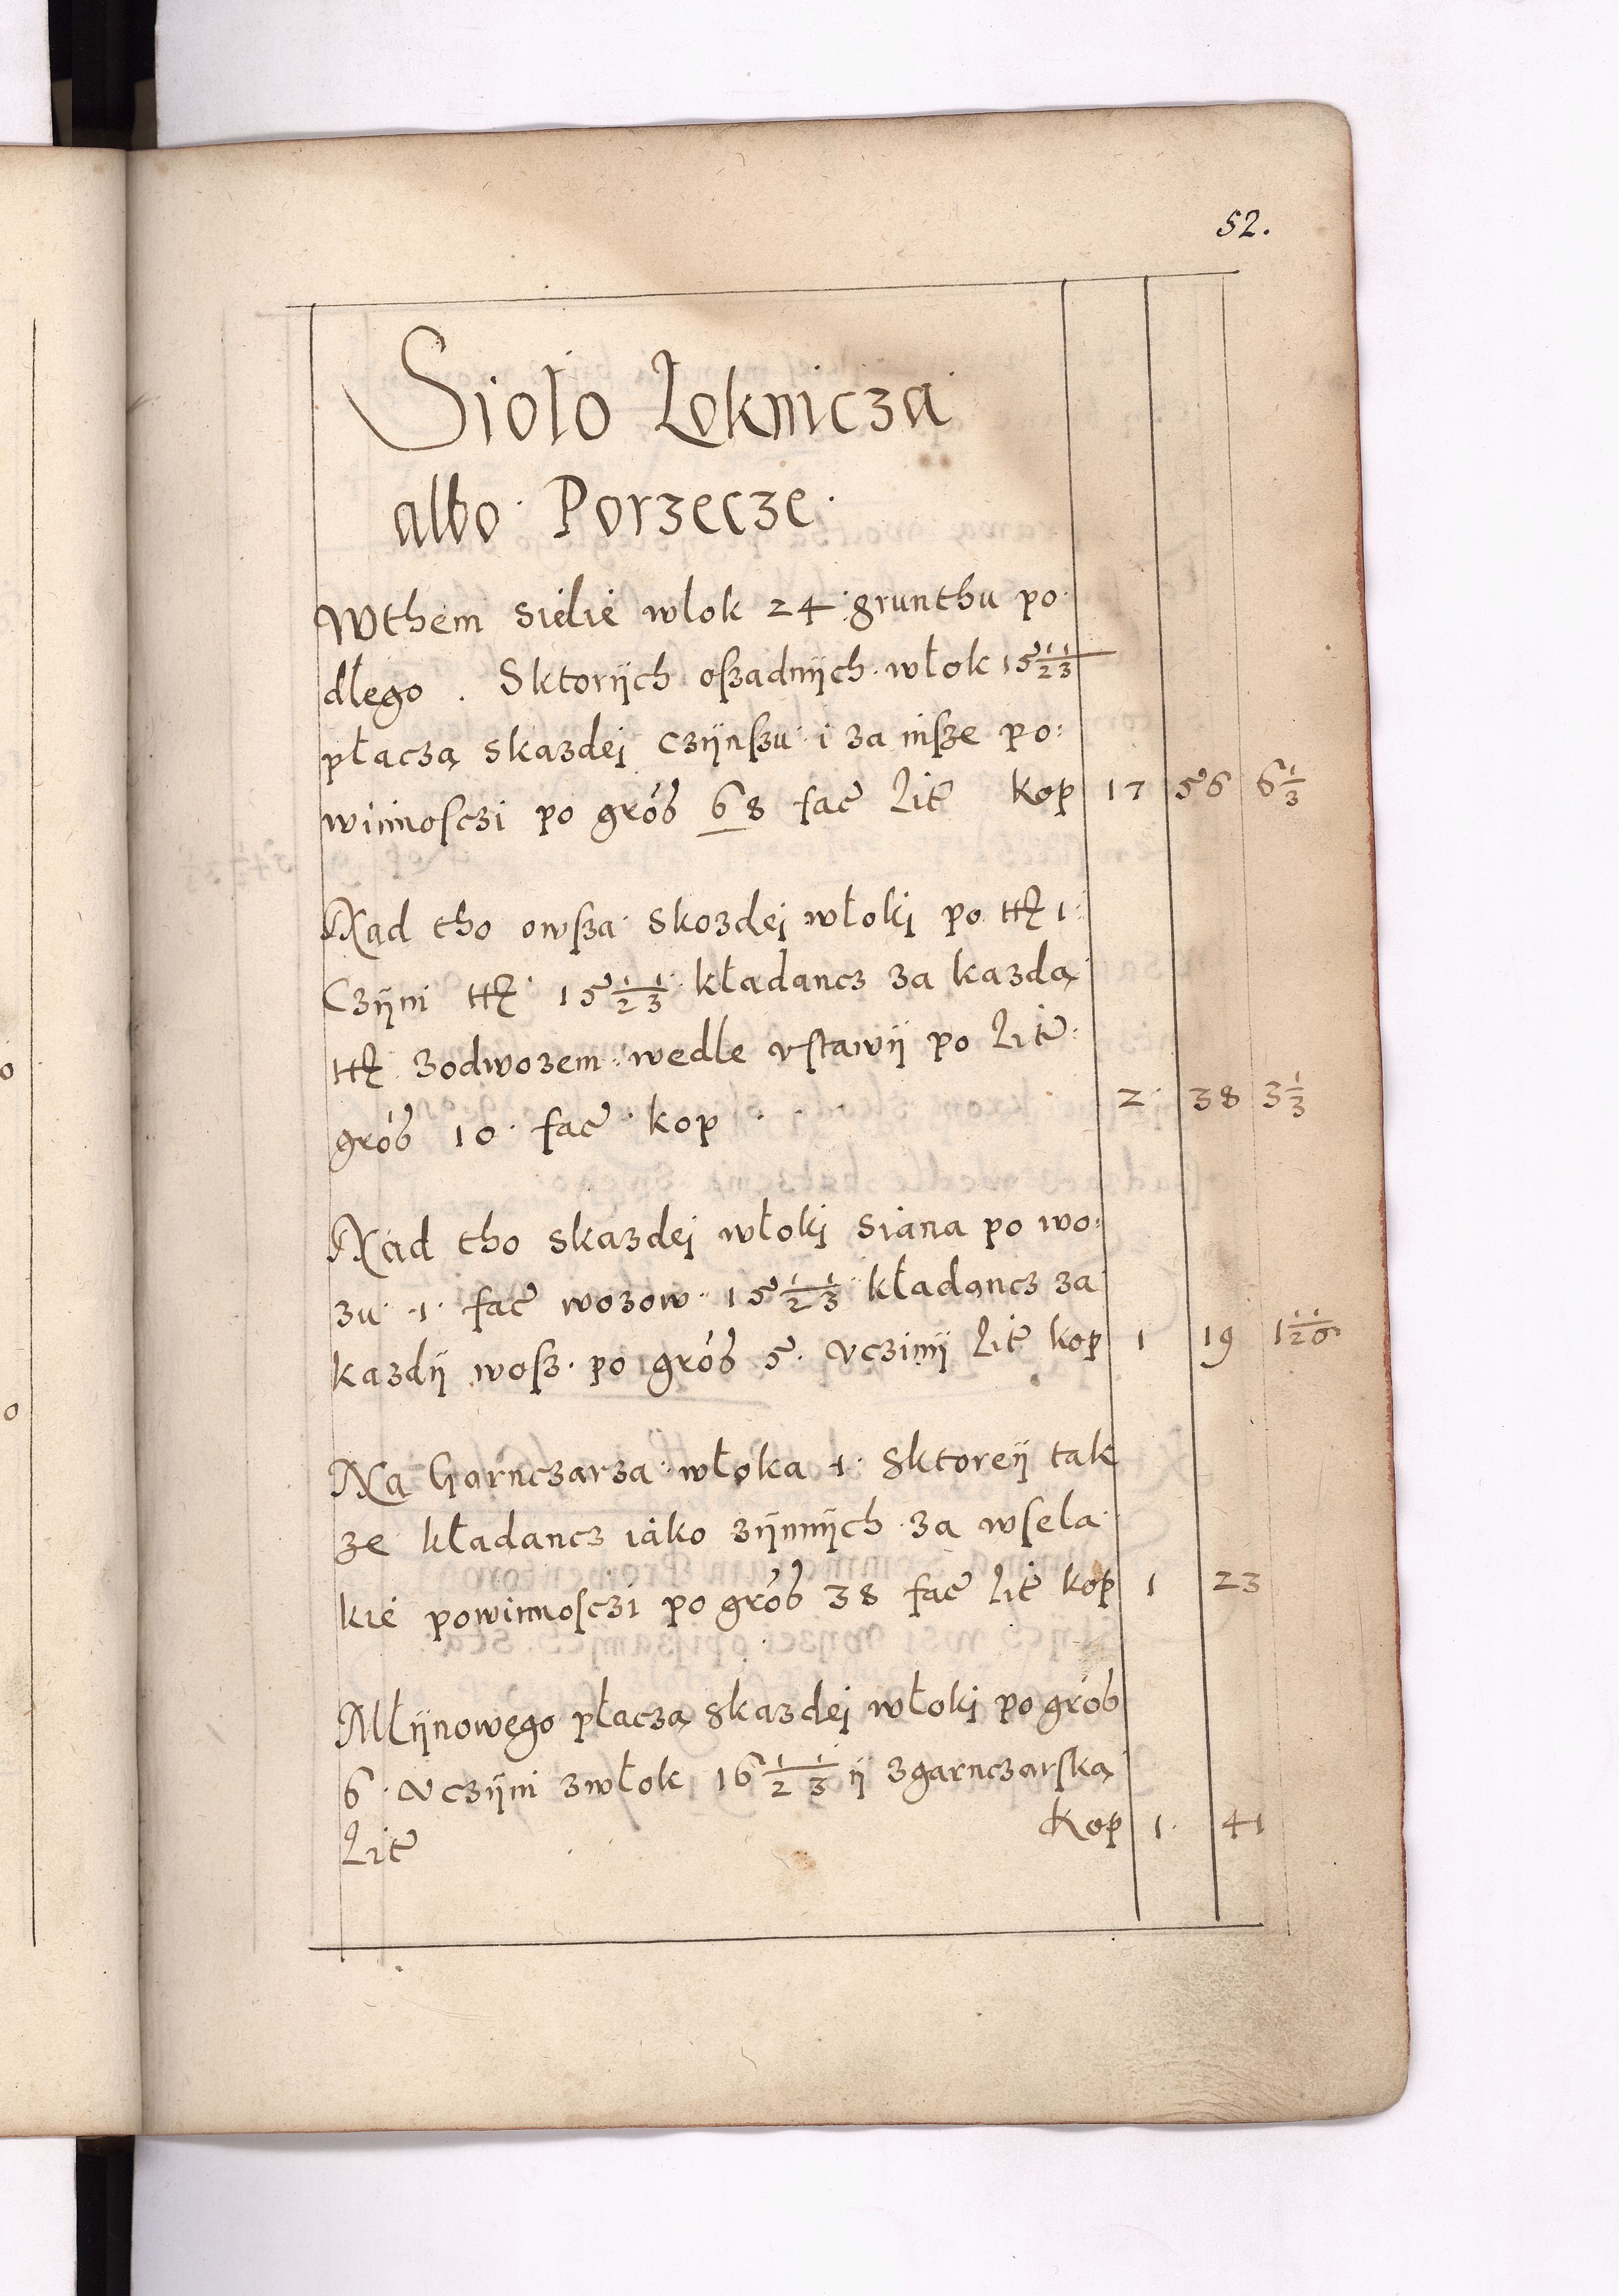 52.
Sioło Łoknicza
albo Porzecze
Wthem sielie wlok 24 grunthu po
dłego. Sktorijch oſzadnijch włok 15 1/2 1/3
płaczą skazdej czijnſzu i za inſze po:
winnosczi po groſ͂ 68 fac͂ Lit͂ kop 17 56 6 1/3
Nad tho owſza skozdej włokj po 1
Czijni 15 1/2 1/3 kładancz za kazdą
zodwozem wedle vſtawij po Lit͂
groſ͂ 10 fac͂ kop 2 38 3 1/3
Nad tho skazdej włokj siana po wo:
zu 1 fac͂ wozow 15 1/2 1/3 kładancz za
kazdij woſz po groſ͂ 5 vczinij Lit͂ kop 1 19
Na Garnczarza włoka 1 Sktoreij tak
ze kładancz iako zijnnijch za wſela
kie powinnoſczi po groſ͂ 38 fac͂ Lit͂ kop 1 23
Młijnowego płaczą skazdej włokj po groſ͂
6 vczijni zwłok 16 1/2 1/3 ij zgarnczarſką
Lit͂ Kop 1 41